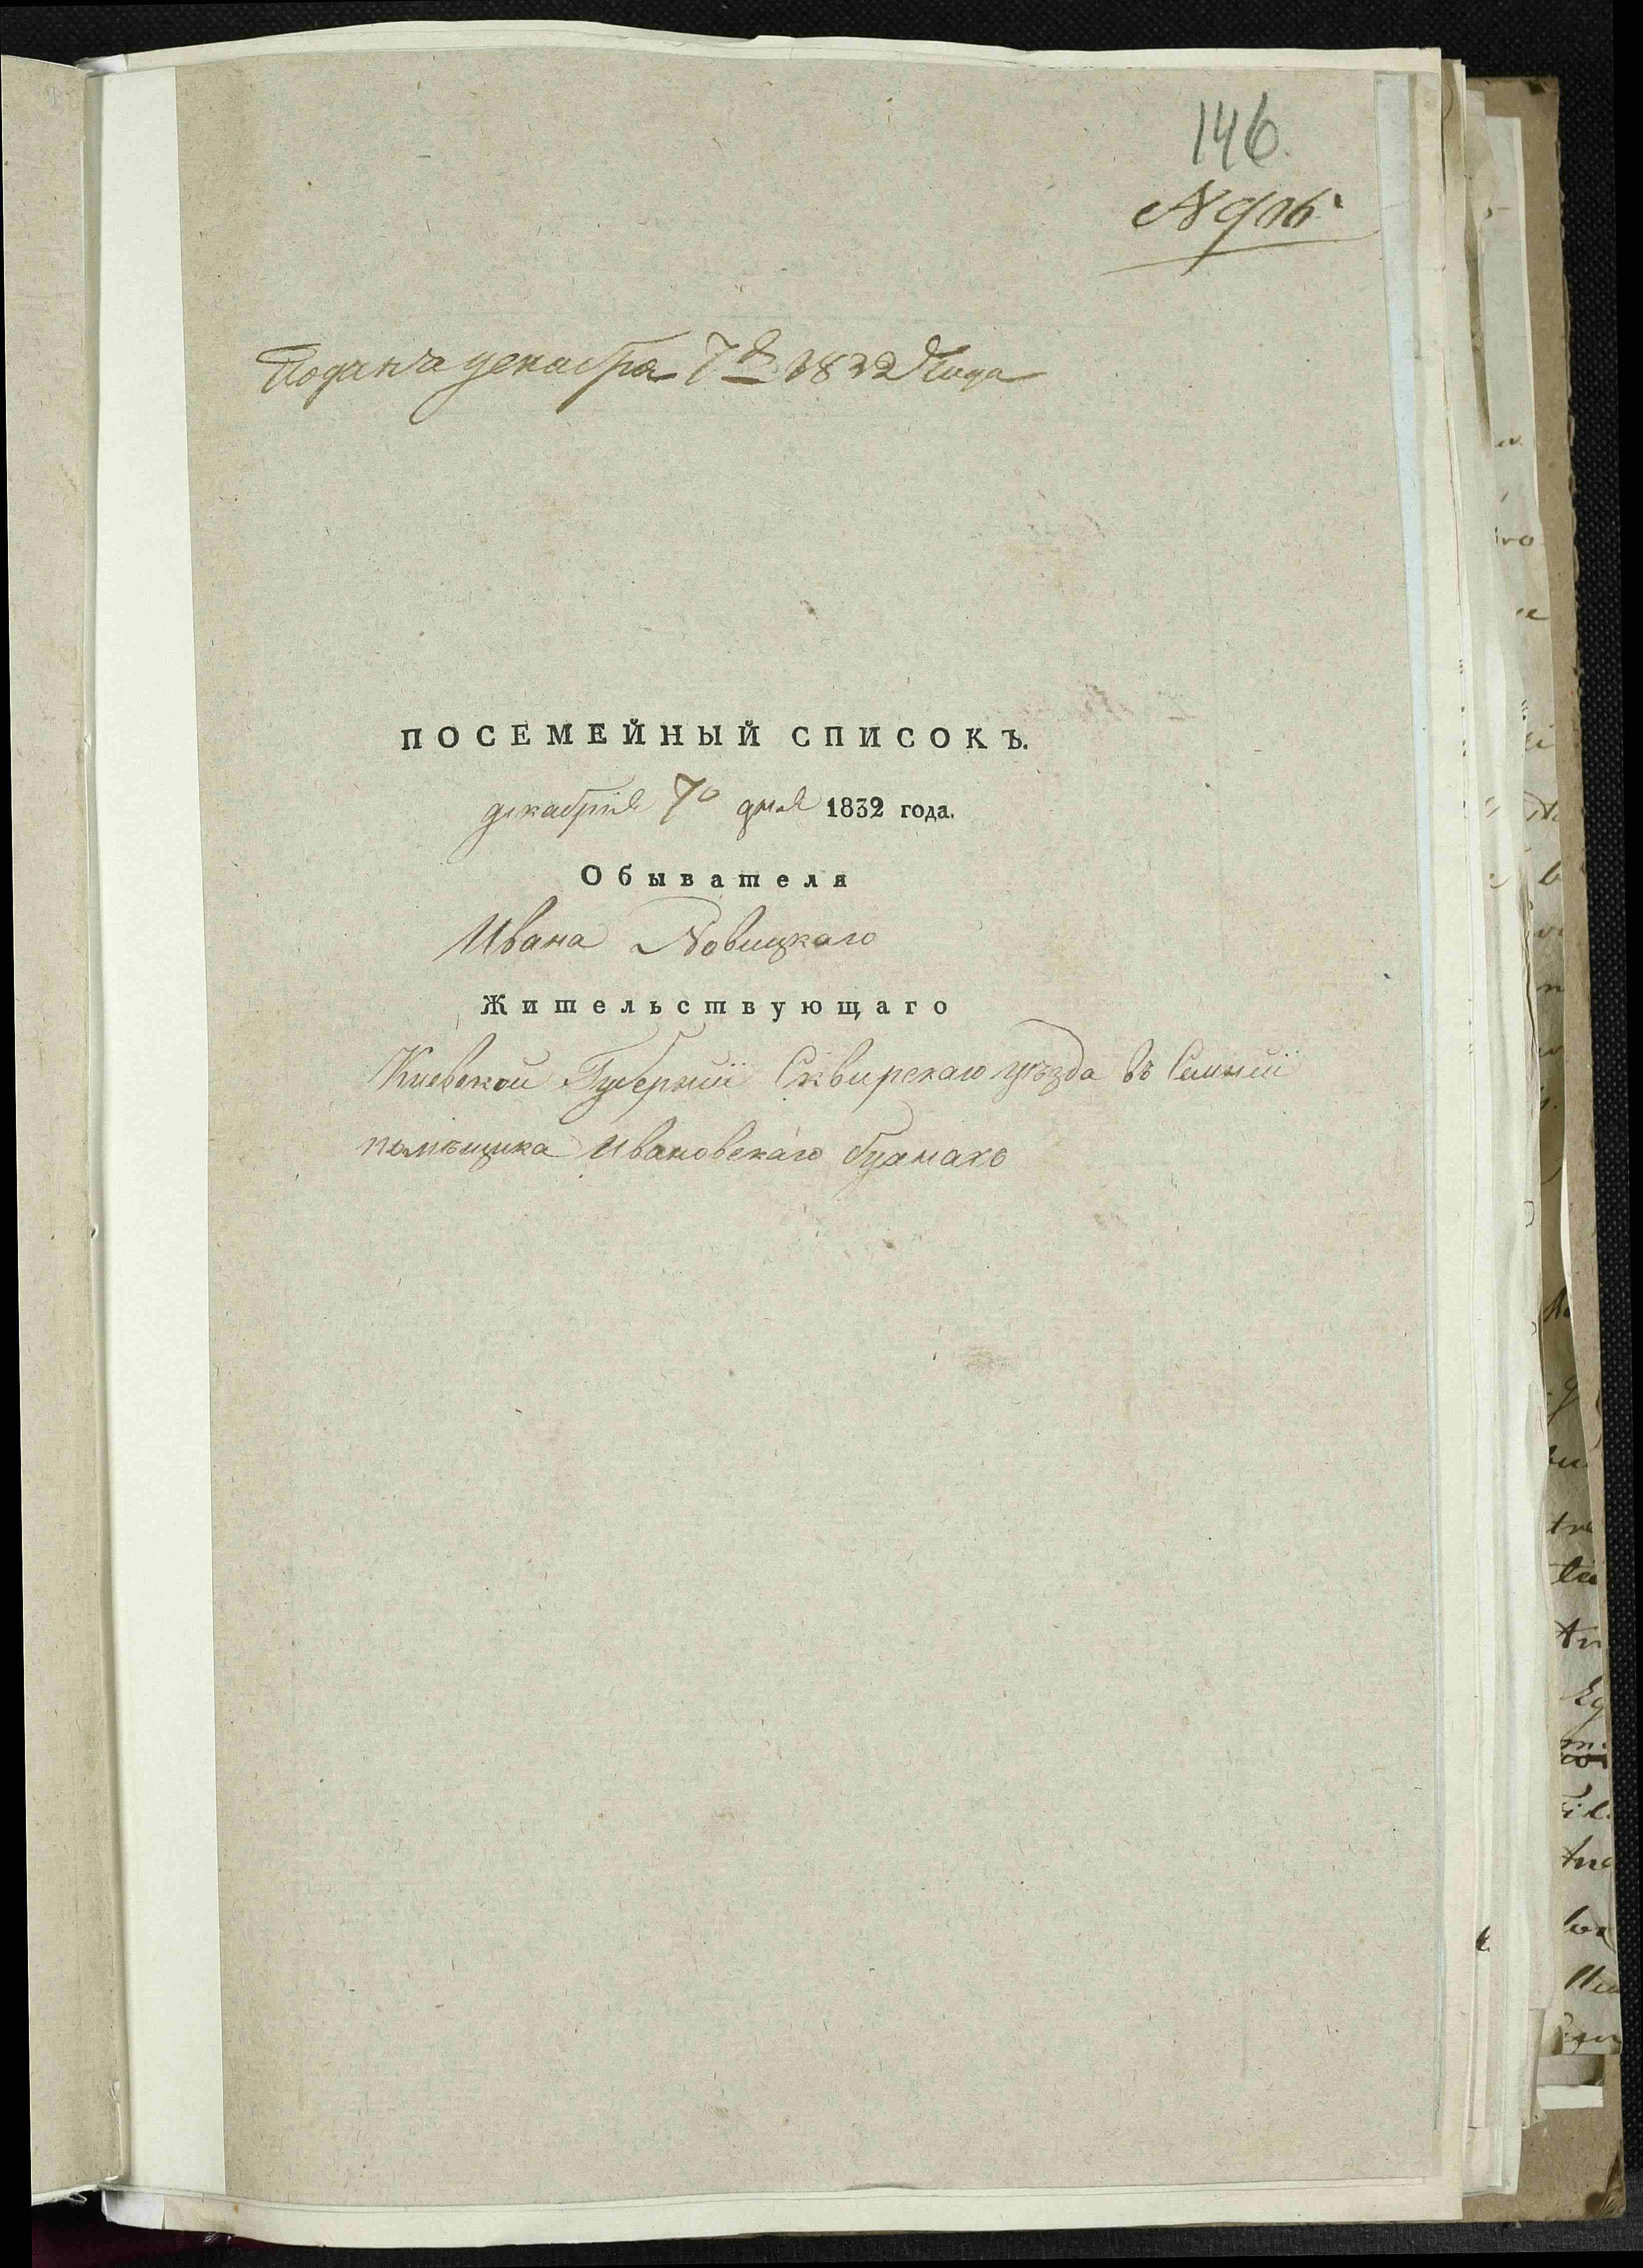 146.
N 916
Подана декабря 7д 1832 Года
ПОСЕМЕЙНЫЙ СПИСОКЪ.
декабря 7о дня 1832 года.
Обывателя
Ивана Новицкаго
Жительствующаго
Киевской Губернии Сквирскаго уѣзда въ
помѣщика Ивановскаго